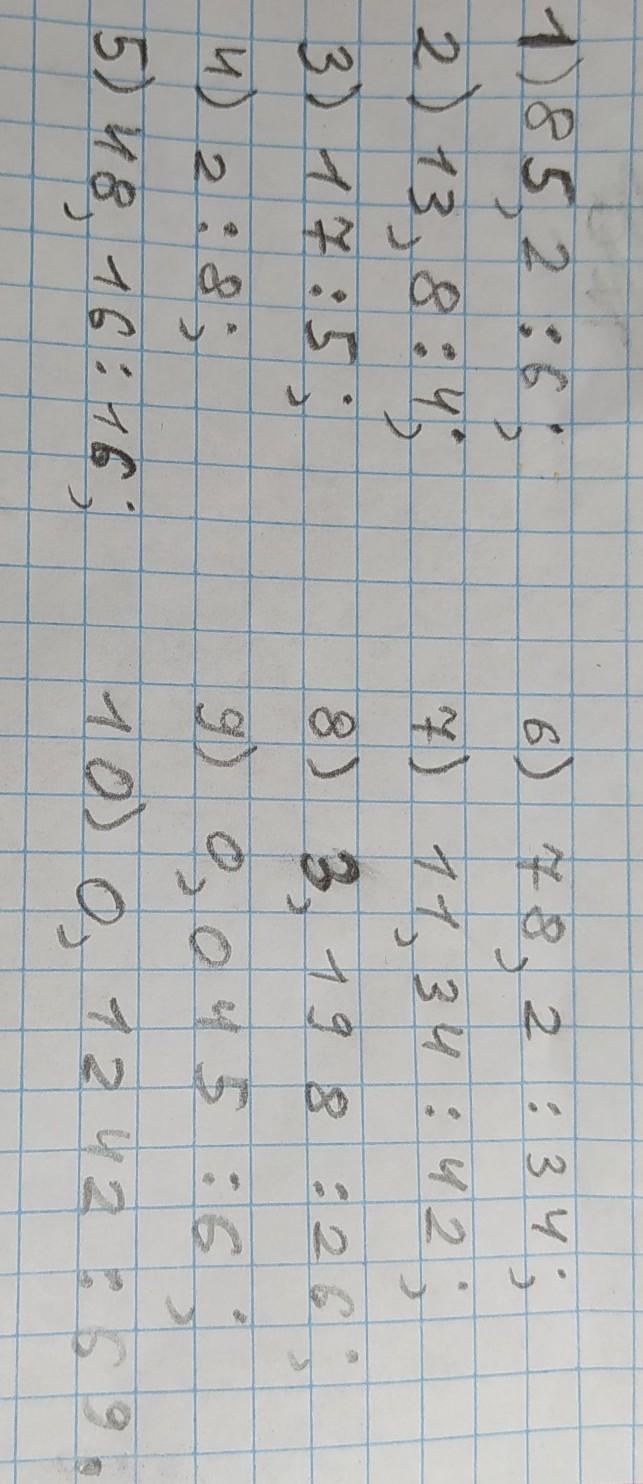 1) 85,2 : 6;
2) 13,8 : 4;
3) 17 : 5;
4) 2 : 8;
5) 48,16 : 16;
6) 78,2 : 34;
7) 11,34 : 42;
8) 3,198 : 26;
9) 0,045 : 6;
10) 0,1242 : 69.